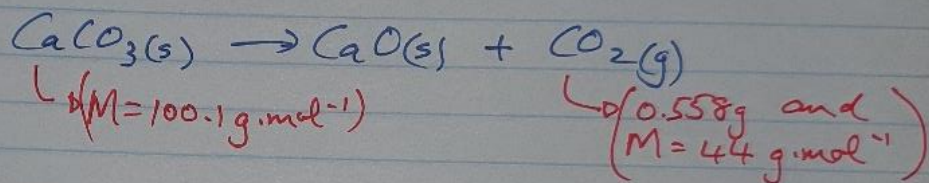 CaCO₃(s) → CaO(s) + CO₂(g)
↳(M=100.1 g.mol⁻¹) ↳(0.558g and
M = 44 g.mol⁻¹)